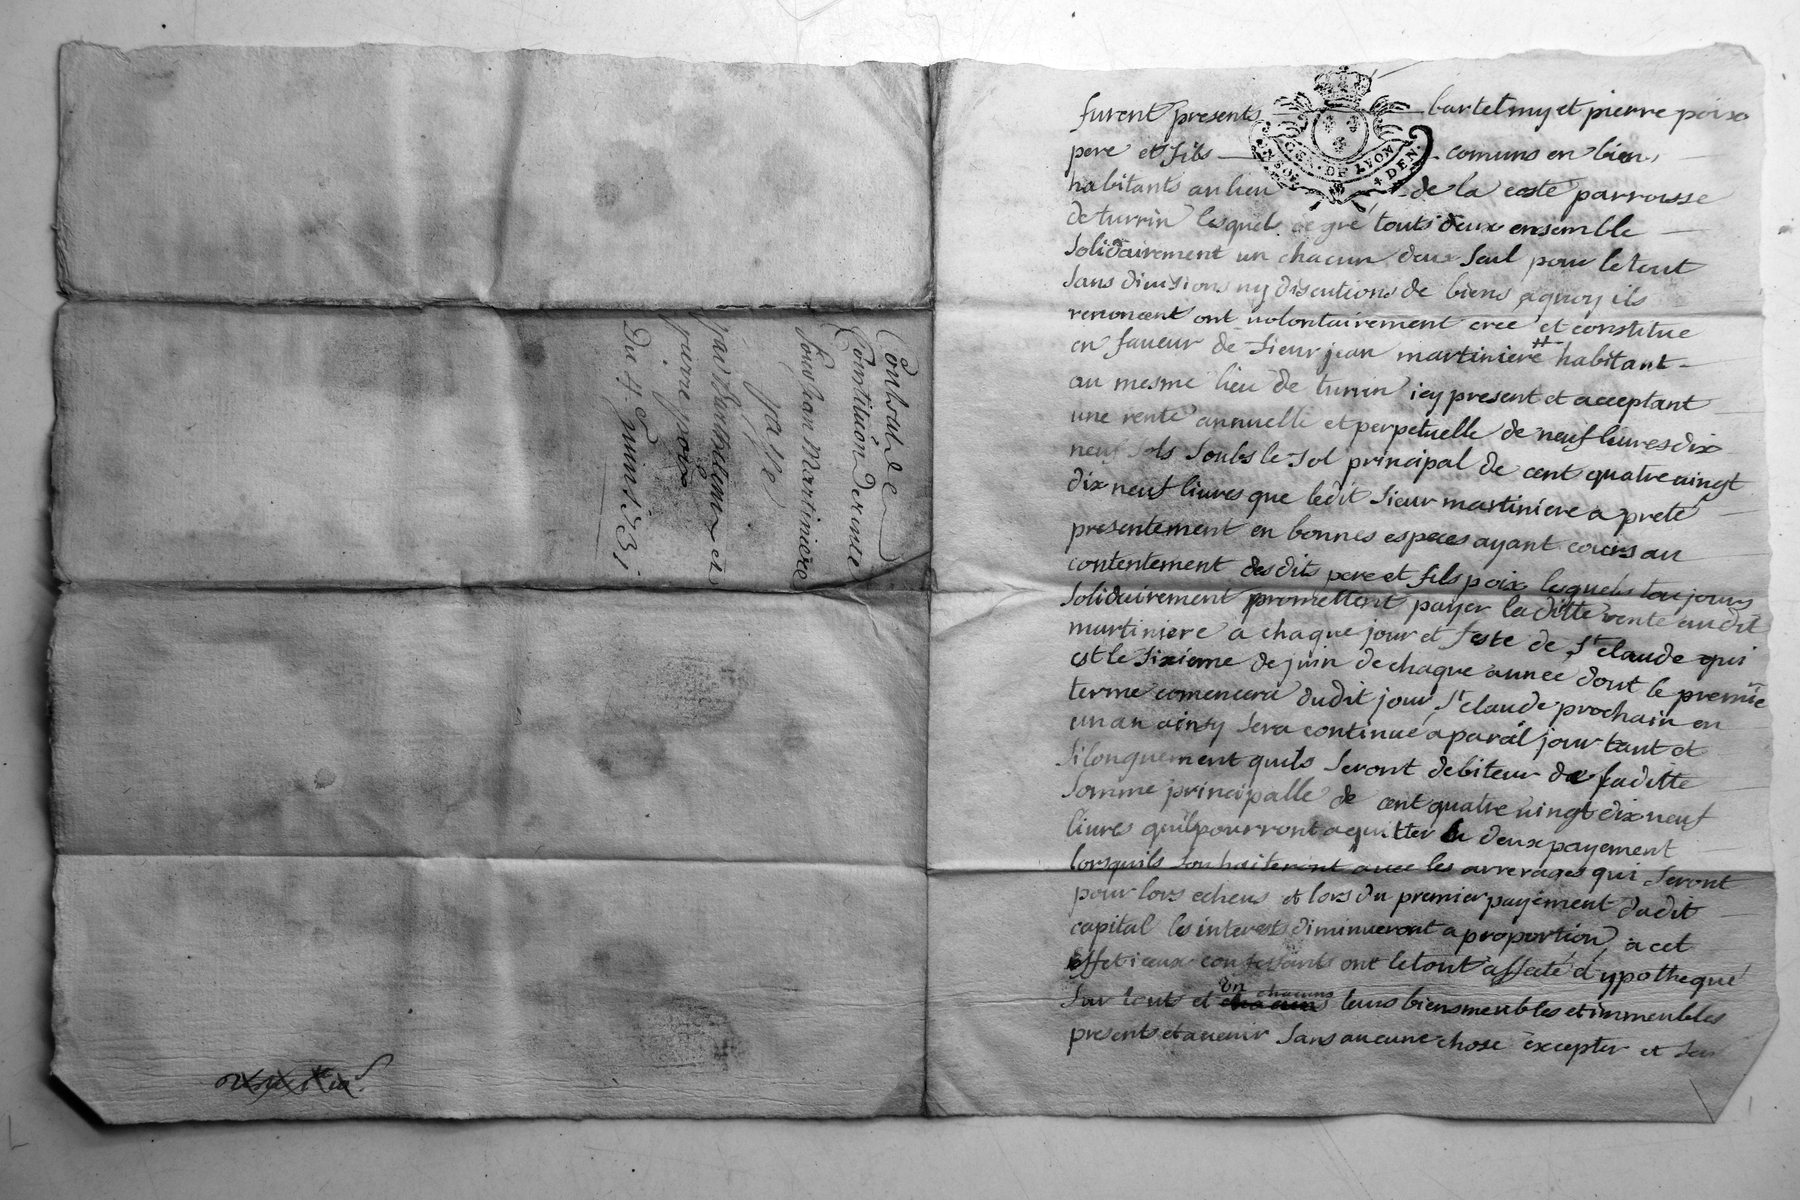 Contrat de
Constitution de rente
Pour Jean Martiniere
passé
par Barthelemy et
pierre poix
Du 4e juin 1731
furent presents bartelmy et pierre poix
pere et fils comuns en biens
habitants au lieu de la coste parroisse
de turrin lesquels de gré touts deux ensemble
Solidairement un chacun deux seul pour le tout
Sans divisions ny discutions de biens a quoy ils
renoncent ont volontairement creé et constitue
en faveur de Sieur jean martiniere habitant
au mesme lieu de turrin icy present et acceptant
une rente annuelle et perpetuelle de neuf livres dix
neuf sols soubs le sol principal de cent quatre vingt
dix neuf livres que ledit Sieur martiniere a preté
presentement en bonnes especes ayant cours au
contentement des dits pere et fils poix lesquels toujours
Solidairement promettent payer la ditte rente audit
martiniere a chaque jour et feste de St claude qui
est le Sixieme de juin de chaque année dont le premie
terme comencera dudit jour St claude prochain en
un an ainsy sera continué a parail jour tant et
Si longuement quils seront debiteur de laditte
Somme principalle de cent quatre vingt dix neuf
livres quil pourront aquitter en deux payement
lorsquils souhaiteront avec les arrerages qui seront
pour lors echeus et lors du premier payement dudit
capital les interests diminueront a proportion, a cet
effet iceux confessants ont le tout affecté d ypotheque
Sur touts et un chacuns leurs biens meubles et immeubles
presents et avenir Sans aucune chose excepter et
GEN. DE LYON
4 DEN.